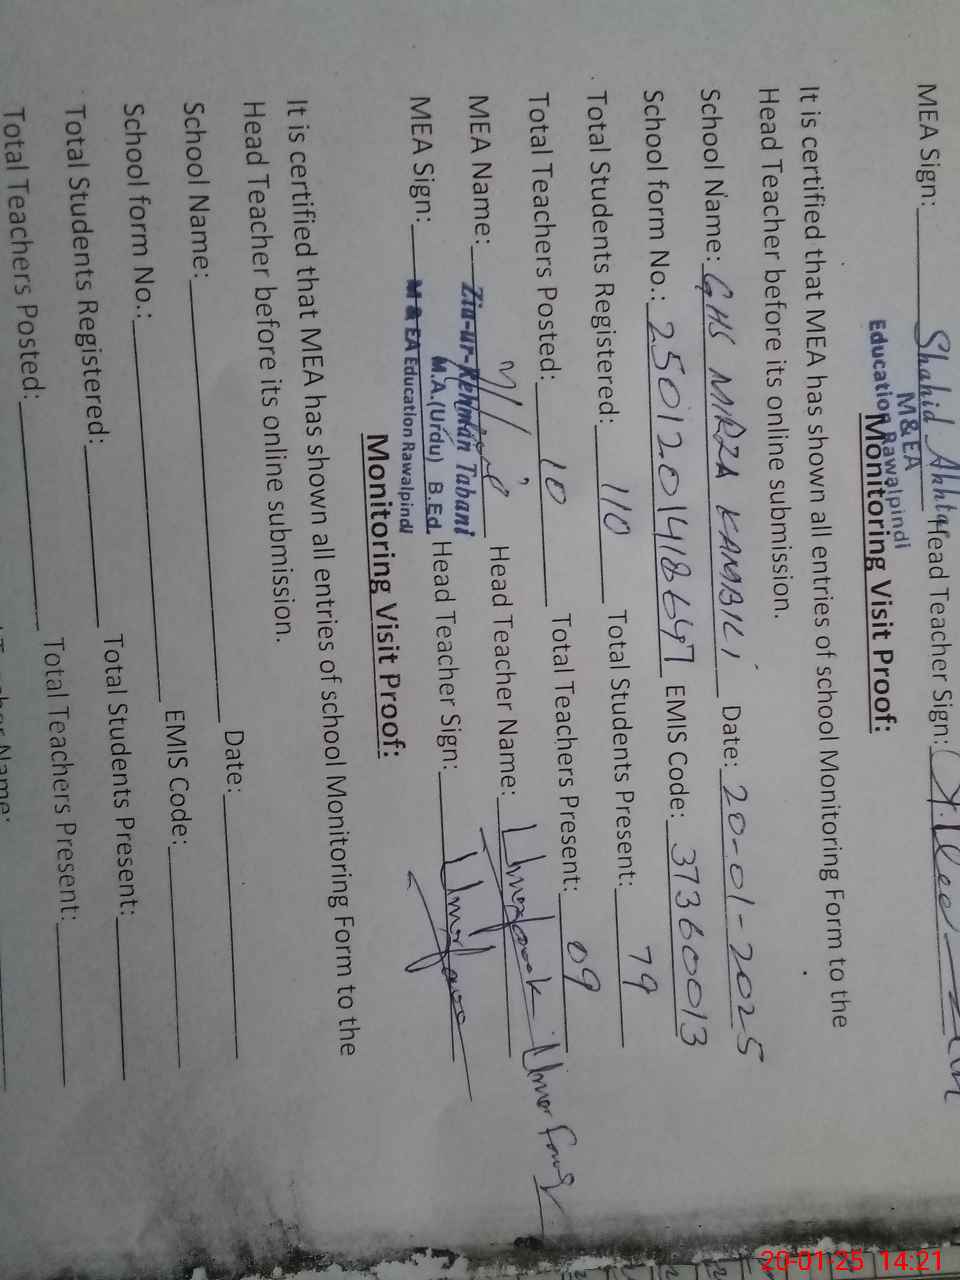 MEA Sign: Shahid Akhtar Head Teacher Sign:
M&EA
Education Rawalpindi
Monitoring Visit Proof:
It is certified that MEA has shown all entries of school Monitoring Form to the
Head Teacher before its online submission.
School Name: GHS MIRZA KAMBILI Date: 20-01-2025
School form No.: 2501201418647 EMIS Code: 37360013
Total Students Registered: 110 Total Students Present: 79
Total Teachers Posted: 10 Total Teachers Present: 09
MEA Name: Head Teacher Name: Umar Farooq
Zia-ur-Rehman Tabani
M.A.(Urdu) B.Ed.
MEA Sign: Head Teacher Sign:
M & EA Education Rawalpindi
Monitoring Visit Proof:
It is certified that MEA has shown all entries of school Monitoring Form to the
Head Teacher before its online submission.
School Name: Date:
School form No.: EMIS Code:
Total Students Registered: Total Students Present:
Total Teachers Posted: Total Teachers Present:
20-01-25 14:21